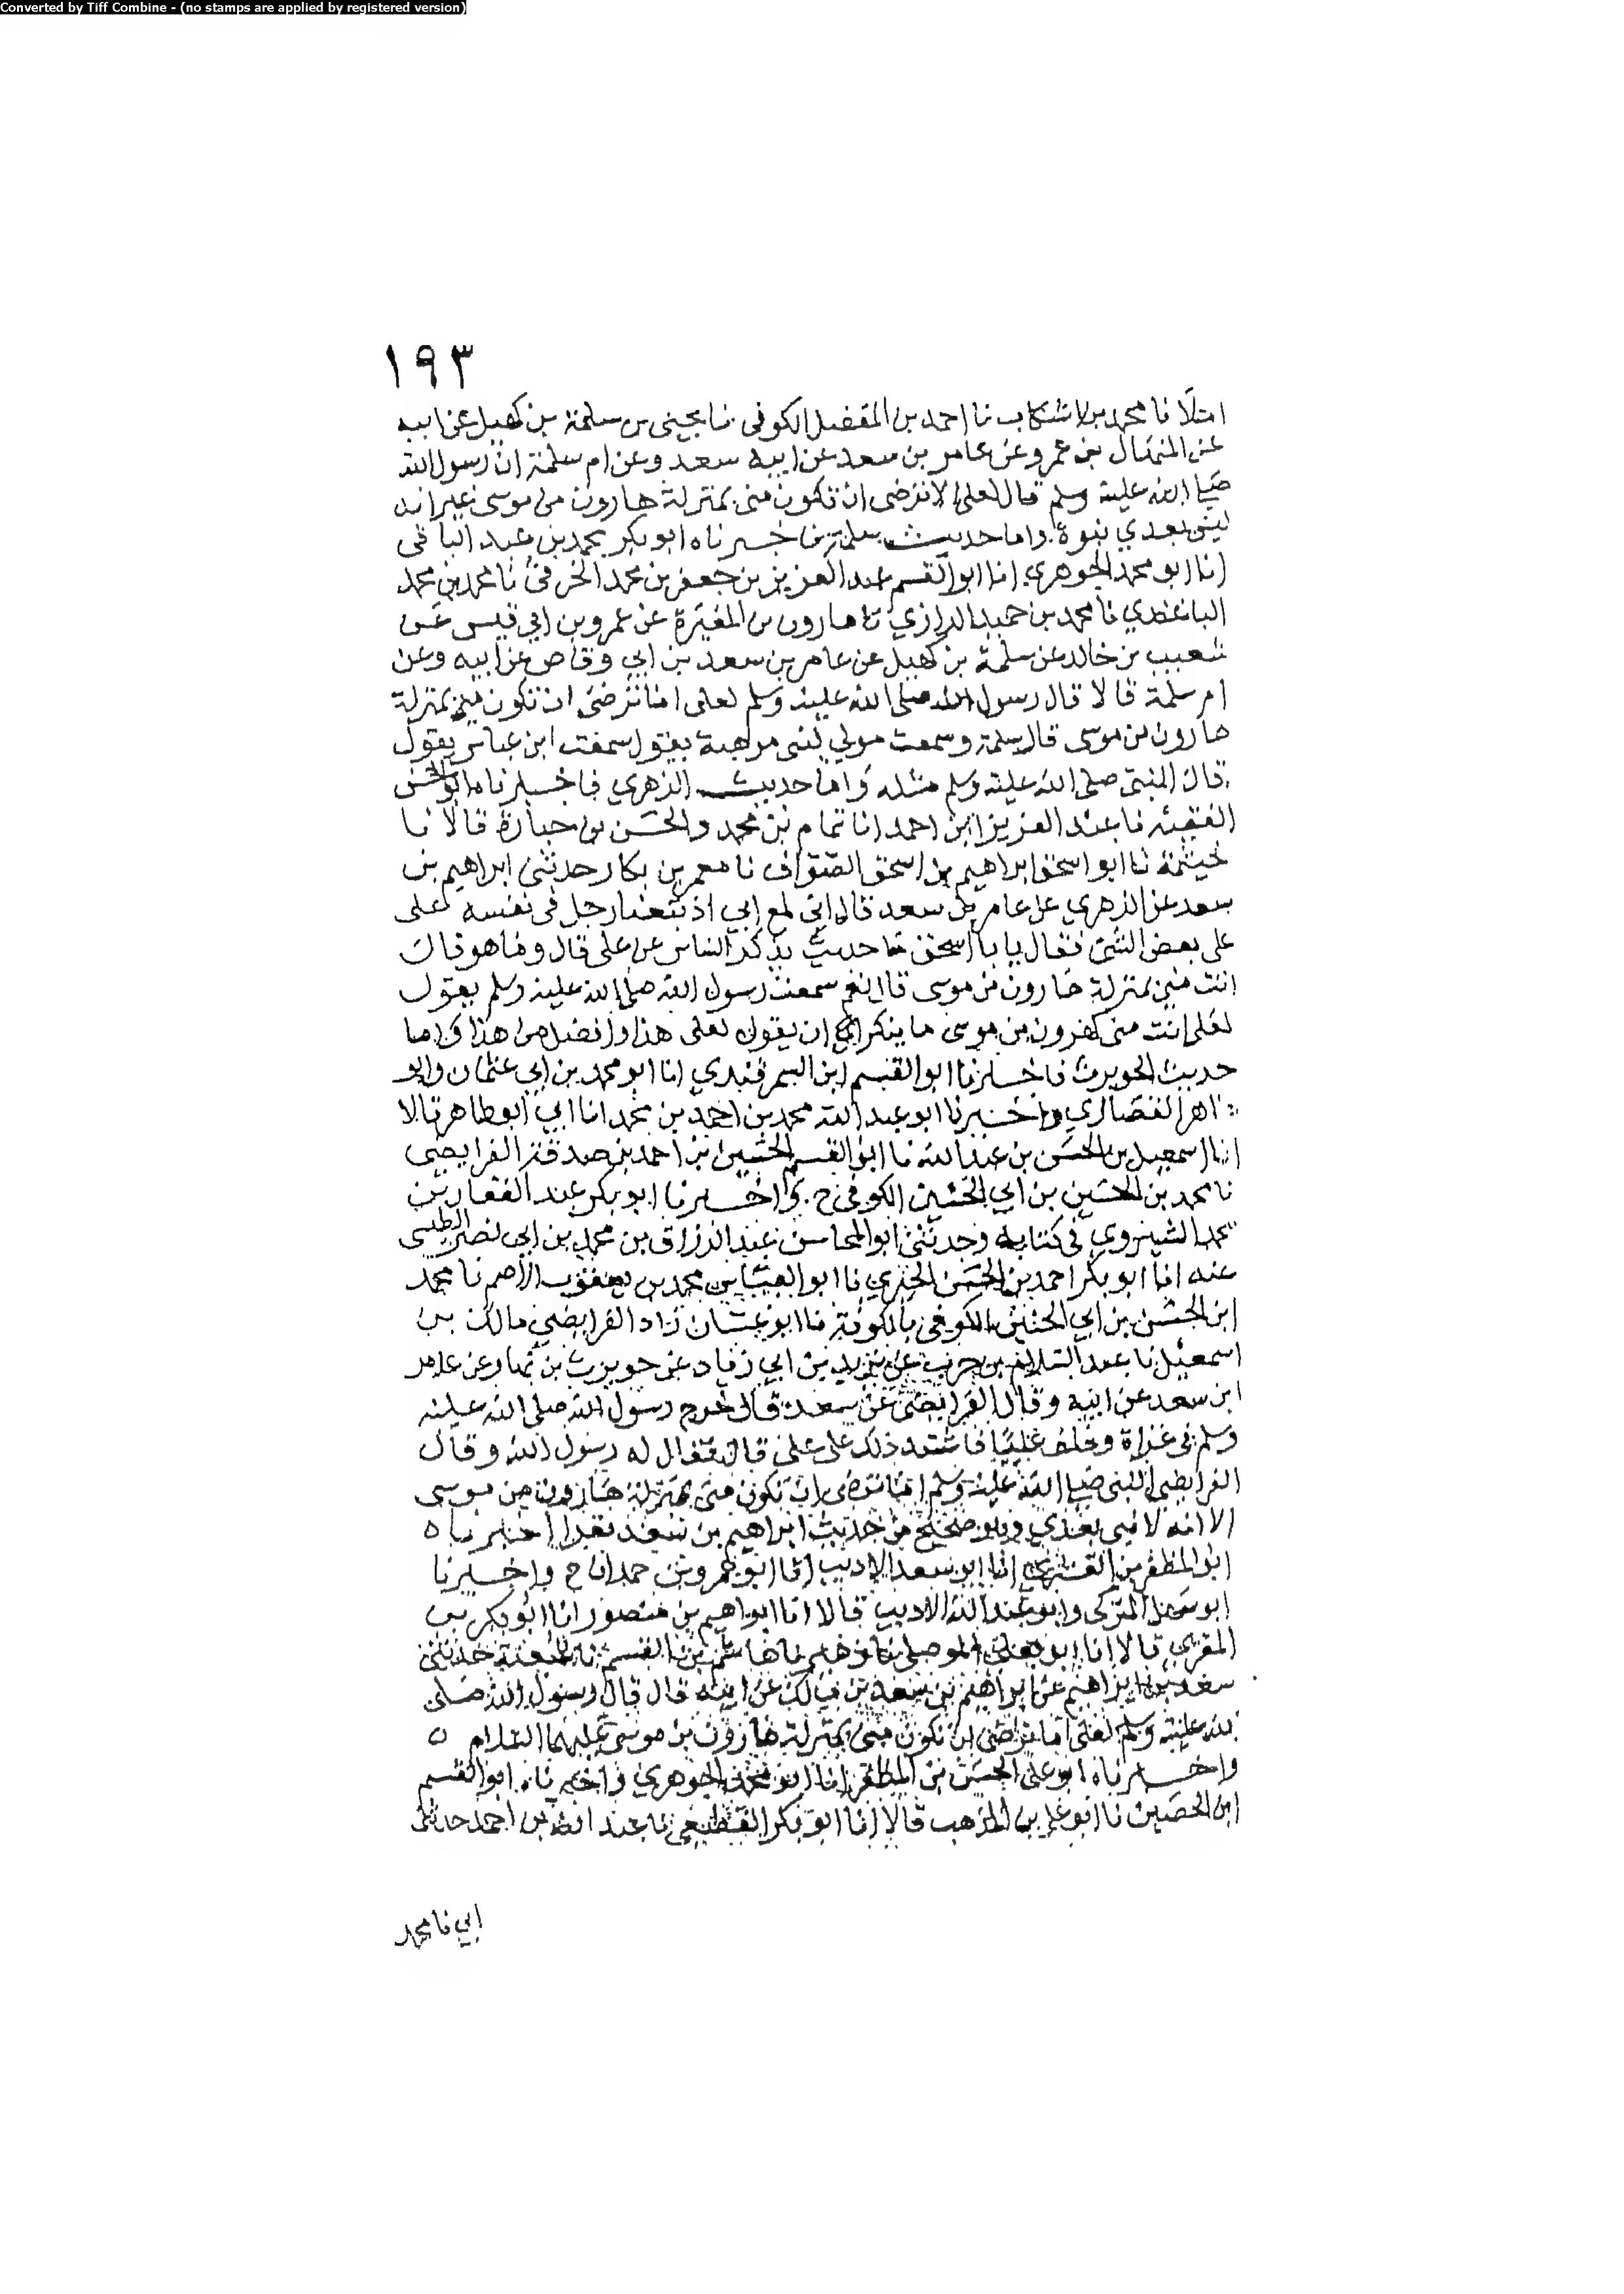 Converted by Tiff Combine - (no stamps are applied by registered version)
١٩٣
املا نا محمد بن اشكاب نا احمد بن المفضل الكوفى نا يحيى بن سلمة بن كهيل عن ابيه
عن المنهال بن عمرو عن عامر بن سعد عن ابيه سعد وعن ام سلمة ان رسول الله
صلى الله عليه وسلم قال لعلى الا ترضى ان تكون منى بمنزلة هارون من موسى غير انه
ليس بعدي نبوة واما حديث سلمة فاخبرناه ابو بكر محمد بن عبد الباقى
انا ابو محمد الجوهري انا ابو القسم عبد العزيز بن جعفر بن محمد الخرقى نا محمد بن محمد
الباغندي نا محمد بن حميد الرازي نا هارون بن المغيرة عن عمرو بن ابي قيس عن
شعيب بن خالد عن سلمة بن كهيل عن عامر بن سعد بن ابي وقاص عن ابيه وعن
ام سلمة قالا قال رسول الله صلى الله عليه وسلم لعلى اما ترضى ان تكون منى بمنزلة
هارون من موسى قال سلمة وسمعت مولي لبنى موهبة يقول سمعت ابن عباس يقول
قال النبى صلى الله عليه وسلم مثله واما حديث الزهري فاخبرناه ابو الحسن
الفقيه نا عبد العزيز ابن احمد انا تمام بن محمد والحسن بن حبارة قالا نا
خيثمة نا ابو اسحق ابراهيم بن اسحق الصوافى نا معمر بن بكار حدثنى ابراهيم بن
سعد عن الزهري عن عامر بن سعد قال انى لمع ابي اذ تبعنا رجل فى نفسه لعلى
على بعض الشئ فقال يا با اسحق ما حديث يذكر الناس عن على قال وما هو قال
انت منى بمنزلة هارون من موسى قال نعم سمعت رسول الله صلى الله عليه وسلم يقول
لعلى انت منى كهرون من موسى ما ينكر ان يقول لعلى هذا وافضل من هذا واما
حديث الحويرث فاخبرنا ابو القسم ابن السمرقندي انا ابو محمد بن ابي عثمان وابو
طاهر القصاري واخبرنا ابو عبد الله محمد بن احمد بن محمد انا ابي ابو طاهر قالا
انا اسمعيل بن الحسن بن عبد الله نا ابو القسم الحسين بن احمد بن صدقة الفرايضى
نا محمد بن الحسين بن ابي الحنين الكوفى ح واخبرنا ابو بكر عبد الغفار بن
محمد الشيروي فى كتابه وحدثنى ابو المحاسن عبد الرزاق بن محمد بن ابى نصر الطبسى
عنه انا ابو بكر احمد بن الحسن الحيري نا ابو العباس محمد بن يعقوب الاصم نا محمد
ابن الحسين بن ابي الحنين الكوفى بالكوفة نا ابو غسان زاد الفرايضى مالك بن
اسمعيل نا عبد السلام بن حرب عن يزيد بن ابي زياد عن حويرث بن نهار عن عامر
ابن سعد عن ابيه وقال الفرايضى عن سعد قال خرج رسول الله صلى الله عليه
وسلم فى غزاة وخلف عليا فاشتد ذلك على على قال فقال له رسول الله وقال
الفرايضى النبى صلى الله عليه وسلم اما ترضى ان تكون منى بمنزلة هارون من موسى
الا انه لا نبى بعدي وهو صحيح من حديث ابراهيم بن سعد اخبرناه
ابو المظفر بن القشيري انا ابو سعد الاديب انا ابو عمرو بن حمدان ح واخبرنا
ابو سهل المزكى وابو عبد الله الاديب قالا انا ابراهيم بن منصور انا ابو بكر بن
المقري قالا انا ابو يعلى الموصلى نا زهير نا هاشم بن القسم نا شعبة حدثنى
سعد بن ابراهيم عن ابراهيم بن سعد بن مالك عن ابيه قال قال رسول الله صلى
الله عليه وسلم لعلى اما ترضى ان تكون منى بمنزلة هارون من موسى عليهما السلام ه
واخبرناه ابو على الحسن بن المظفر انا ابو محمد الجوهري واخبرناه ابو القسم
ابن الحصين نا ابو على بن المذهب قالا انا ابو بكر القطيعى نا عبد الله بن احمد حدثنى
ابي نا محمد